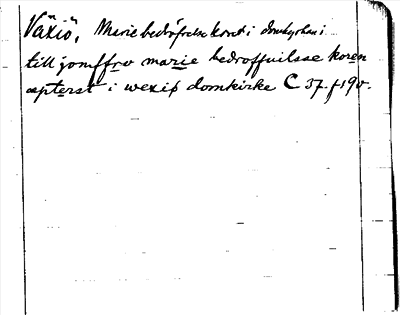 Växiö, Marie bedröfvelse koret i domkyrkan i
till jomffrv marie bedroffuilsse koren
æpterst i wexiø domkirke C 37. f 19v.